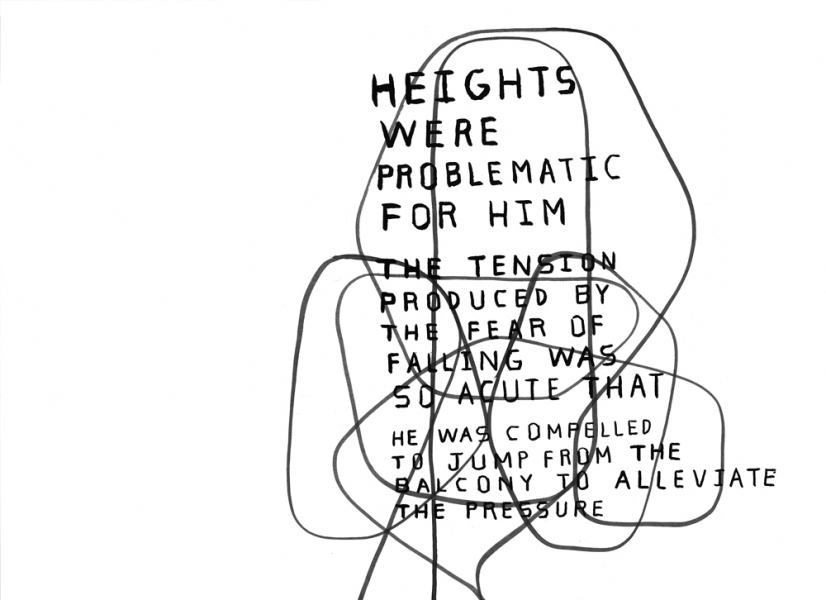 HEIGHTS
WERE
PROBLEMATIC
FOR HIM
THE TENSION
PRODUCED BY
THE FEAR OF
FALLING WAS
SO ACUTE THAT
HE WAS COMPELLED
TO JUMP FROM THE
BALCONY TO ALLEVIATE
THE PRESSURE